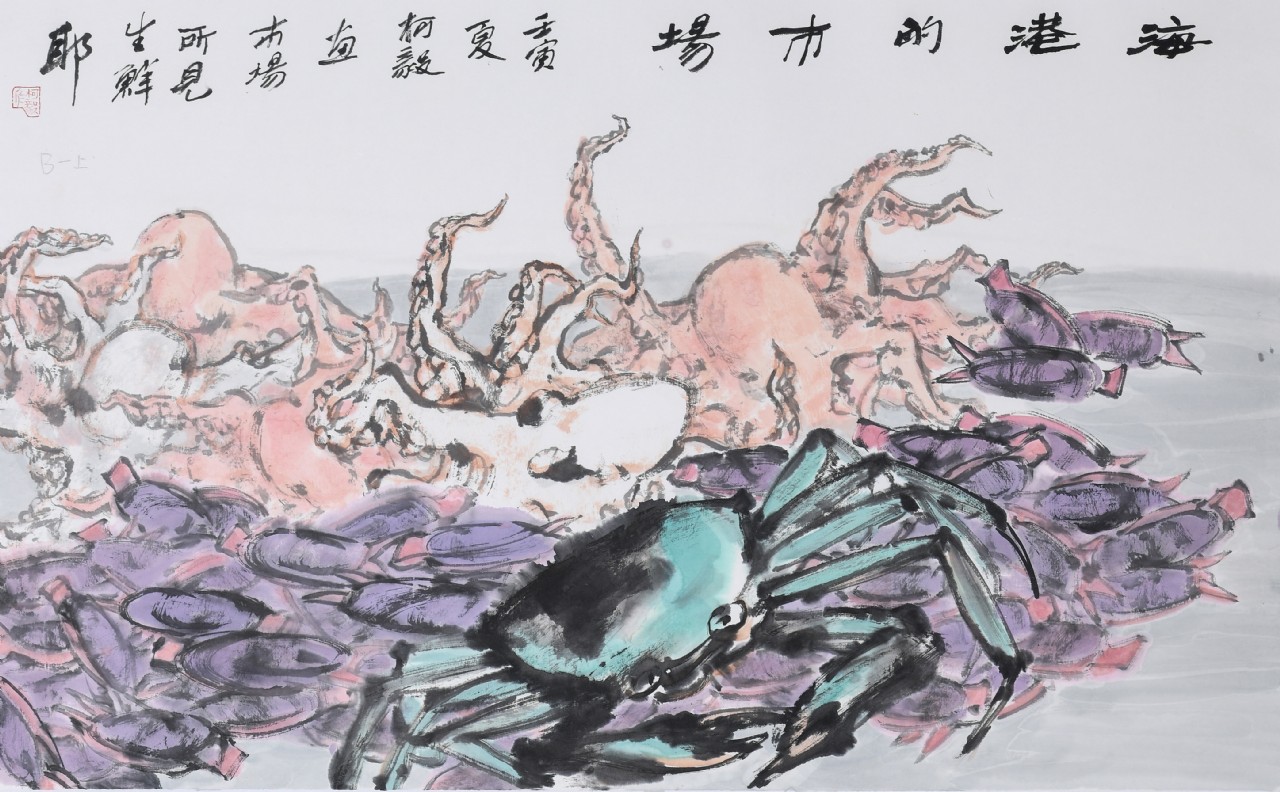 海港的市場
壬寅
夏
柯毅
畫
市場
所見
生鮮
耶
B-上